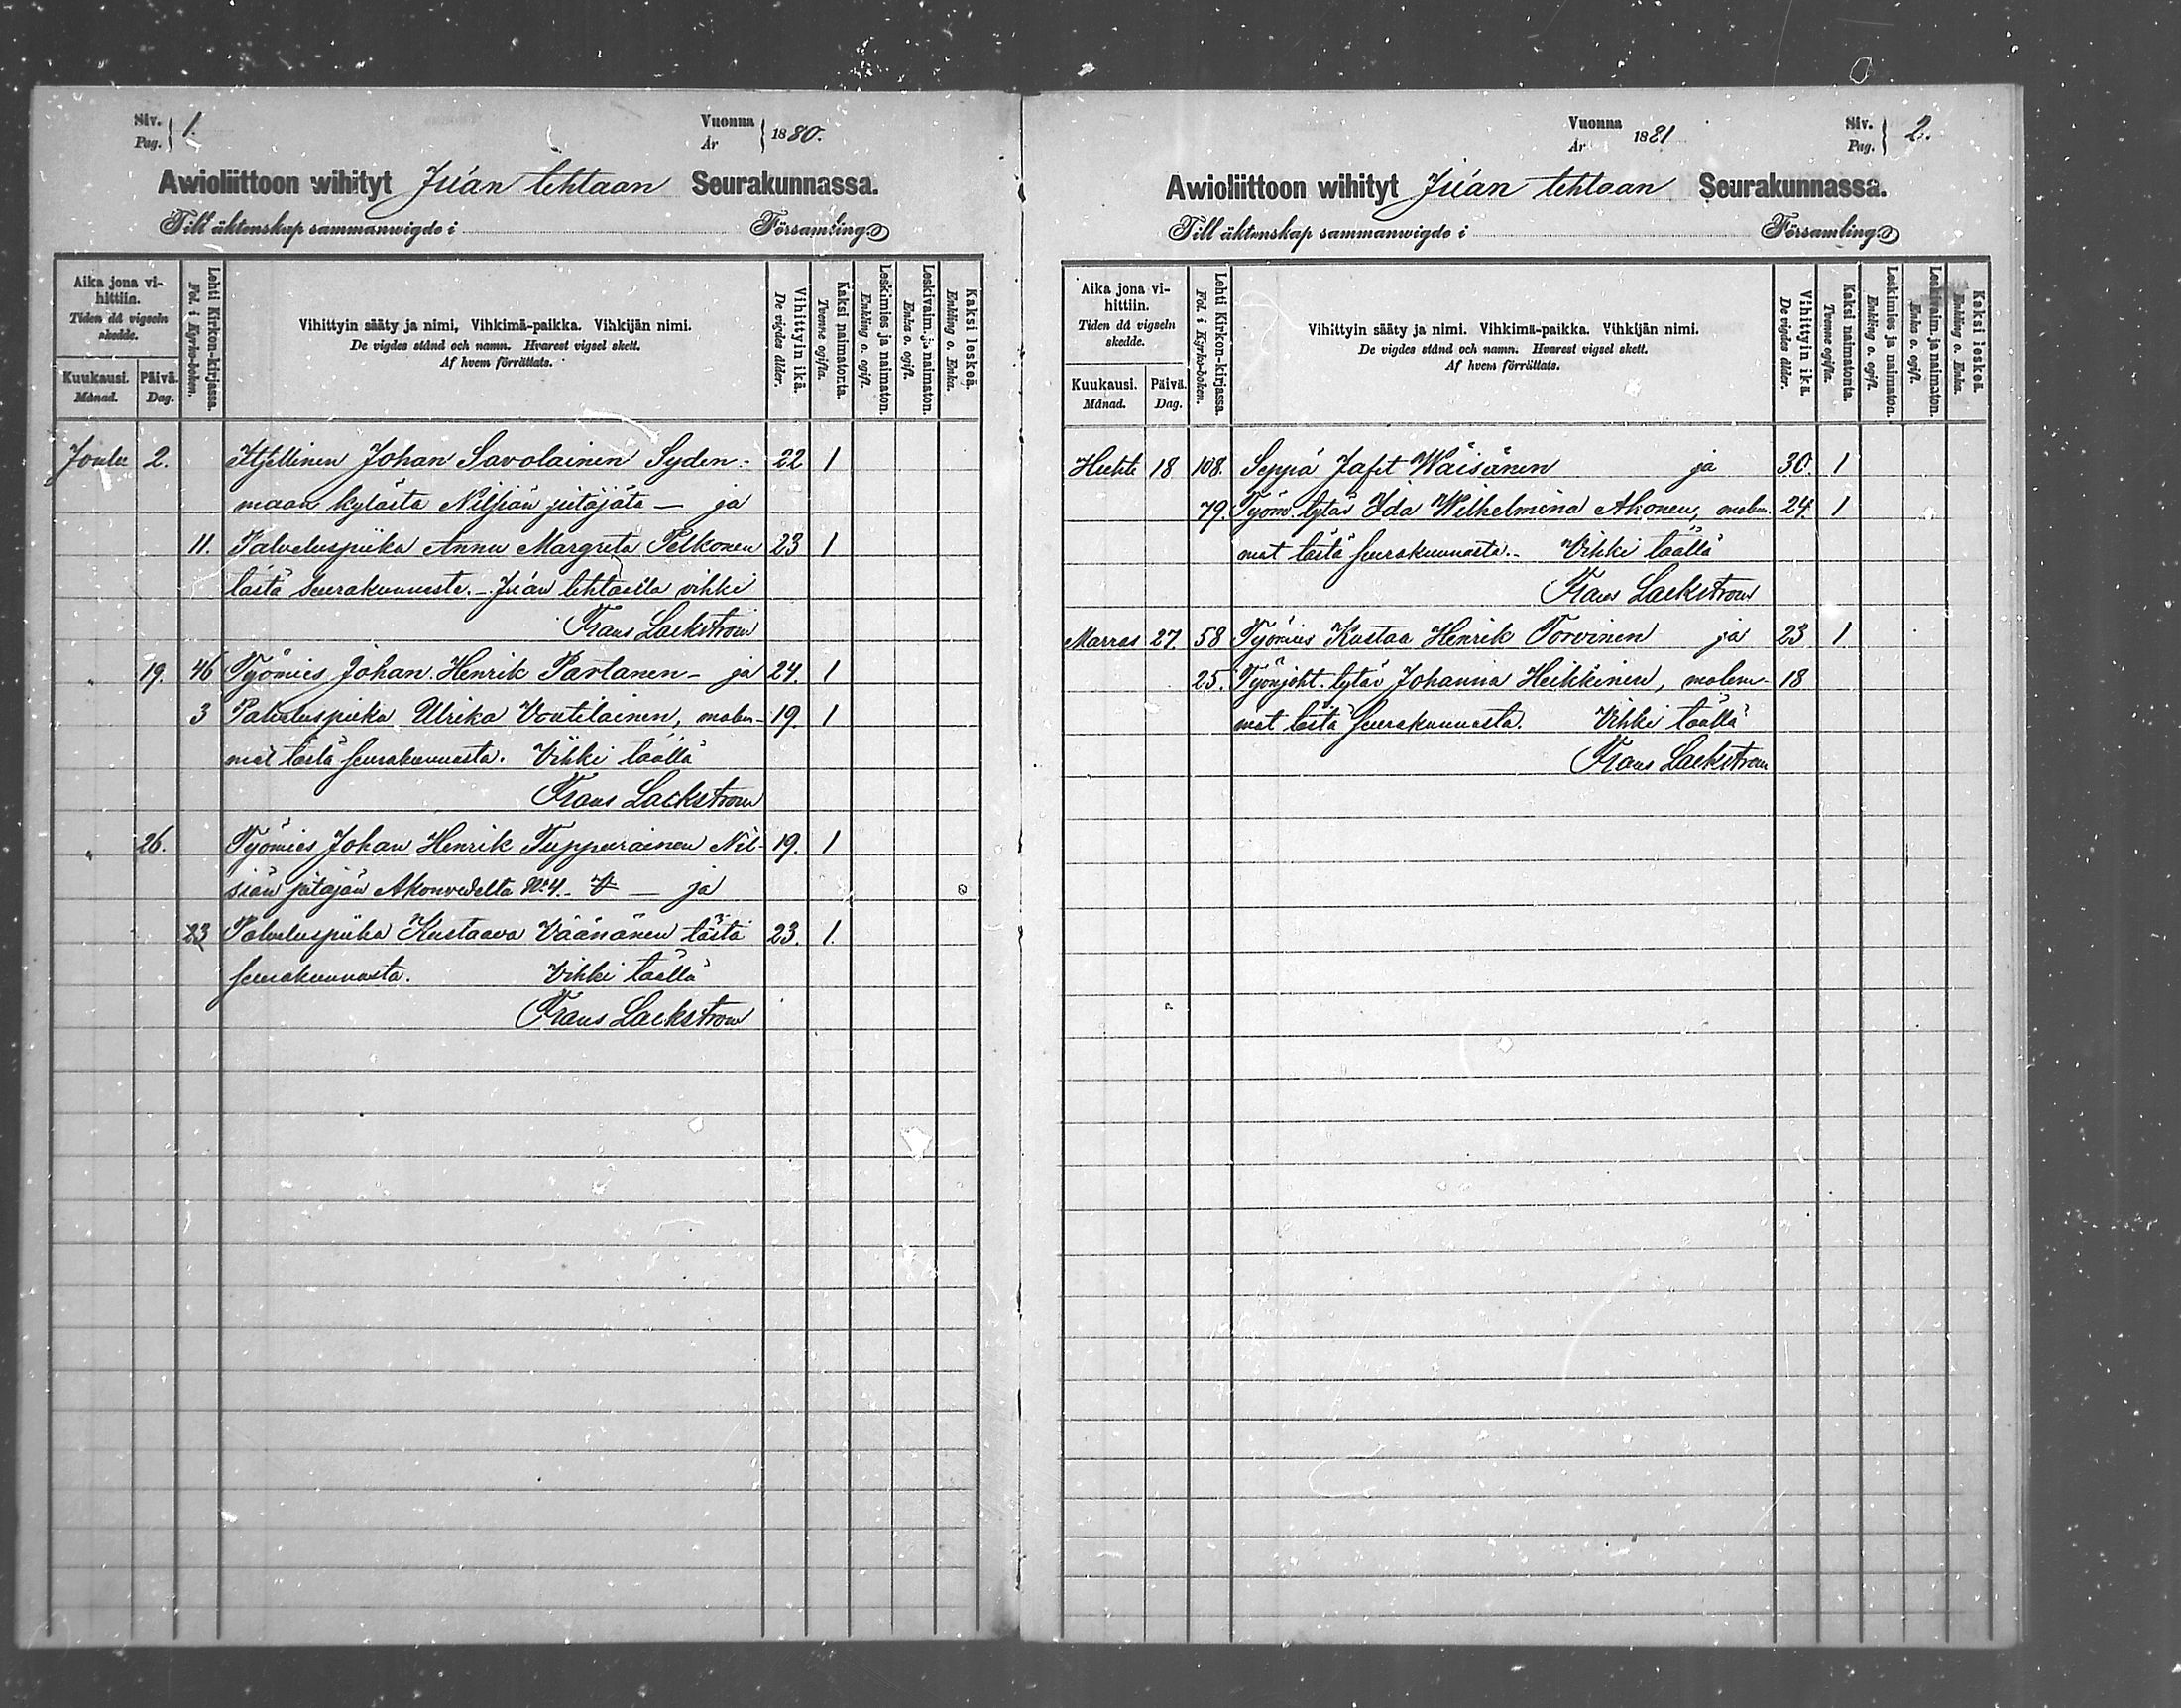 Siv.
Pag. 1.
Vuonna
År 1880.
Awioliittoon wihityt Juan tehtaan Seurakunnassa.
Till äktenskap sammanwigde i Församling
Aika jona vihittiin.
Tiden då vigseln skedde.
Kuukausi. Månad.
Päivä. Dag.
Lehti Kirkon-kirjassa.
Fol. i Kyrko-boken.
Vihittyin sääty ja nimi, Vihkimä-paikka. Vihkijän nimi.
De vigdes stånd och namn. Hvarest vigsel skett.
Af hvem förrättats.
Vihittyin ikä.
De vigdes ålder.
Kaksi naimatonta.
Tvenne ogifta.
Leskimies ja naimaton.
Enkling o. ogift.
Leskivaim. ja naimaton.
Enka o. ogift.
Kaksi leskeä.
Enkling o. Enka.
Joulu 2. Itjellinen Johan Savolainen Syden- 22 1
maan kylästä Nilsiän pitäjätä — ja
11. Palveluspiika Anna Margreta Pelkonen 23 1
tästä Seurakunnasta. - Juan tehtaalla vihki
Frans Lackström
" 19. 46 Työmies Johan Henrik Partanen - ja 24. 1
3 Palveluspiika Ulrika Voutilainen, molem- 19. 1
mat tästä seurakunnasta. Vihki täällä
Frans Lackström
" 26. Työmies Johan Henrik Tuppurainen Nil- 19. 1
siän pitäjän Akonvedelta No 4. — ja
23 Palveluspiika Kustaava Väänänen tästä 23. 1.
seurakunnasta. Vihki täällä
Frans Lackström
Vuonna
År 1881
Siv.
Pag. 2.
Awioliittoon wihityt Juan tehtaan Seurakunnassa.
Till äktenskap sammanwigde i Församling
Aika jona vihittiin.
Tiden då vigseln skedde.
Kuukausi. Månad.
Päivä. Dag.
Lehti Kirkon-kirjassa.
Fol. i Kyrko-boken.
Vihittyin sääty ja nimi. Vihkimä-paikka. Vihkijän nimi.
De vigdes stånd och namn. Hvarest vigsel skett.
Af hvem förrättats.
Vihittyin ikä.
De vigdes ålder.
Kaksi naimatonta.
Tvenne ogifta.
Leskimies ja naimaton.
Enkling o. ogift.
Leskivaim. ja naimaton.
Enka o. ogift.
Kaksi leskeä.
Enkling o. Enka.
Huhti 18 108. Seppä Jafet Wäisänen ja 30. 1
79. Työm. tytär Ida Wilhelmina Ahonen, molem- 24. 1
mat tästä seurakunnasta. - Vihki täällä
Frans Lackström
Marras 27. 58 Työmies Kustaa Henrik Torvinen ja 23 1.
25. Työnjoht. tytär Johanna Heikkinen, molem- 18
mat tästä seurakunnasta. Vihki täällä
Frans Lackström